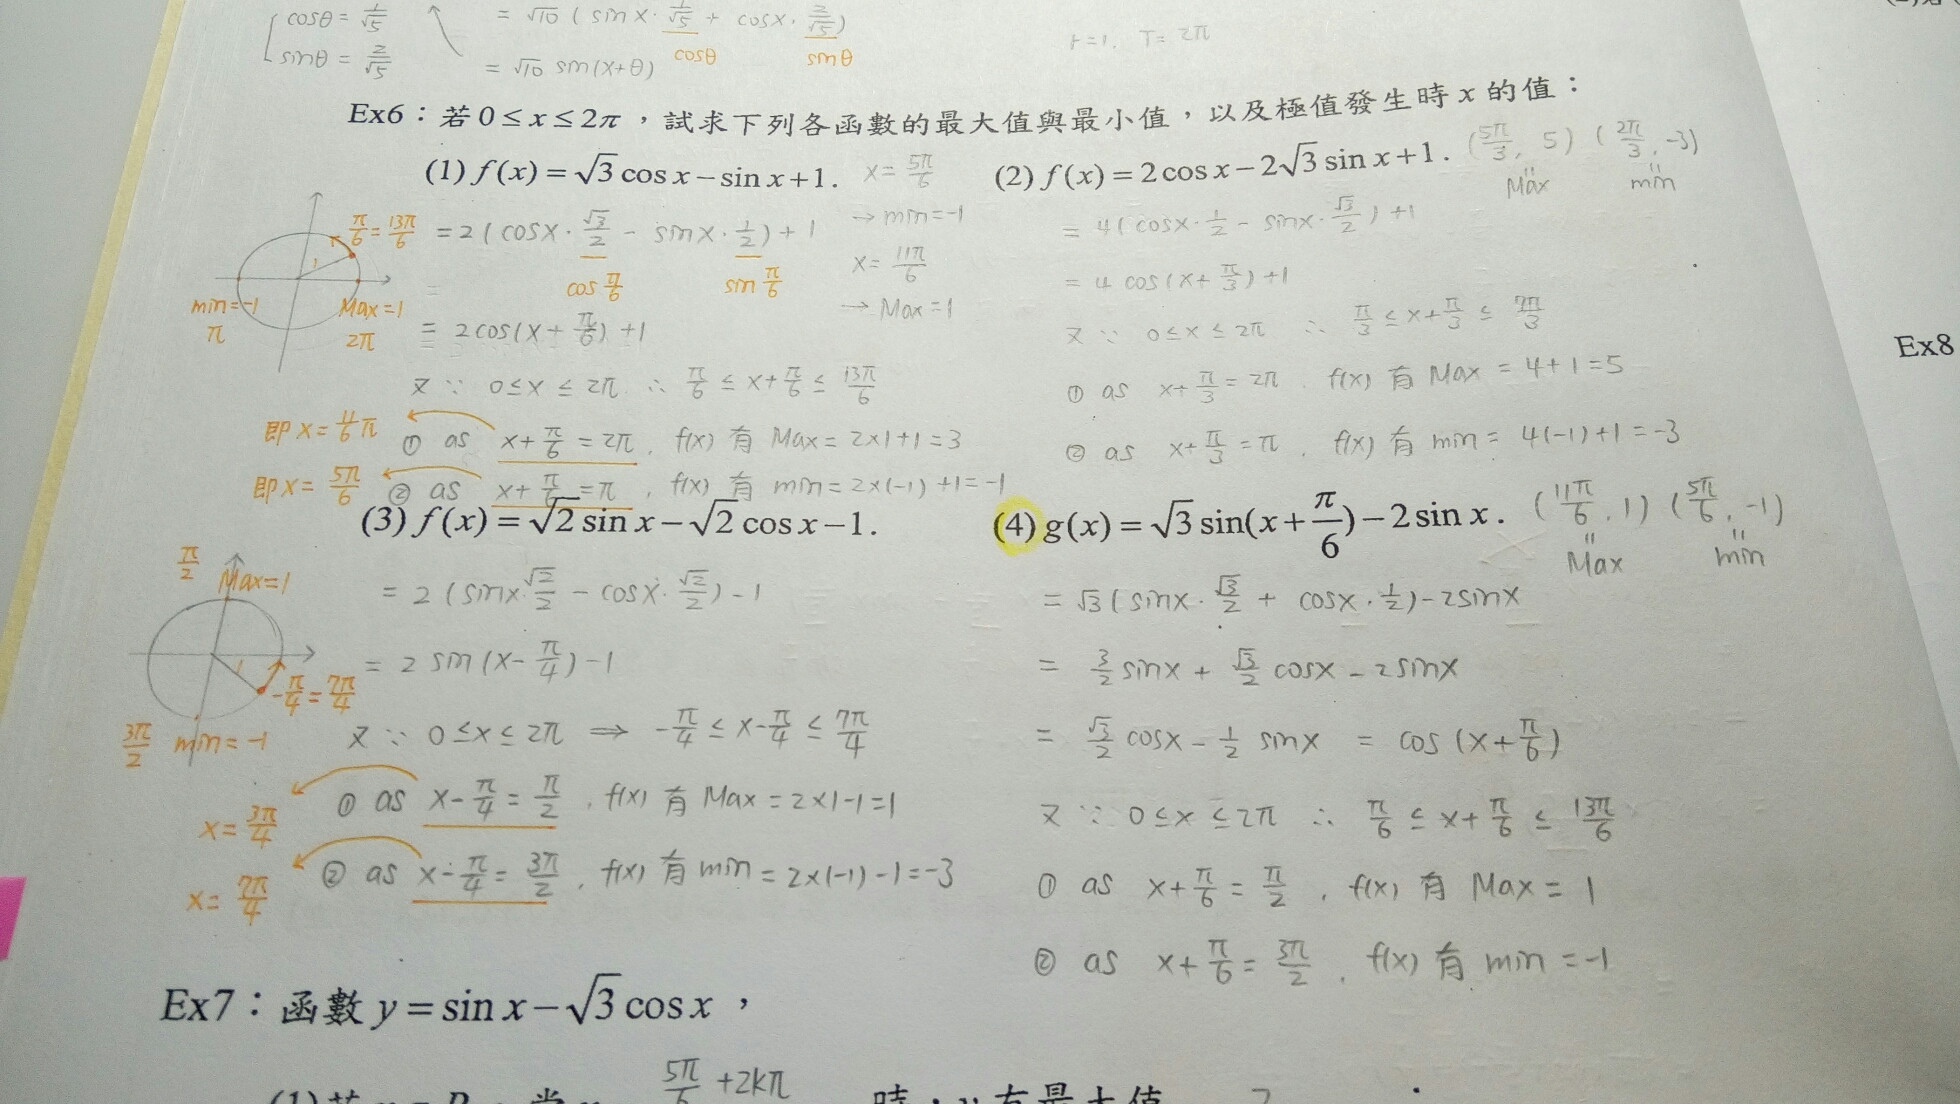 cosθ = 1/√5
sinθ = 2/√5
= √10 ( sin x · 1/√5 + cosx · 2/√5 )
cosθ sinθ
= √10 sin(x+θ)
T = 2π
Ex6：若 0 ≤ x ≤ 2π，試求下列各函數的最大值與最小值，以及極值發生時 x 的值：
(1) f(x) = √3 cos x − sin x + 1.
x = 5π/6
→ min = -1
x = 11π/6
→ Max = 1
π/6 = 13π/6
min = -1
π
Max = 1
2π
= 2 ( cosx · √3/2 - sinx · 1/2 ) + 1
cos π/6 sin π/6
=
= 2cos(x + π/6) + 1
又 ∵ 0 ≤ x ≤ 2π ∴ π/6 ≤ x + π/6 ≤ 13π/6
即 x = 11/6 π ① as x + π/6 = 2π , f(x) 有 Max = 2×1+1 = 3
即 x = 5π/6 ② as x + π/6 = π , f(x) 有 min = 2×(-1)+1 = -1
(2) f(x) = 2 cos x − 2√3 sin x + 1.
(5π/3, 5) (2π/3, -3)
Max min
= 4 ( cosx · 1/2 - sinx · √3/2 ) + 1
= 4 cos (x + π/3) + 1
又 ∵ 0 ≤ x ≤ 2π ∴ π/3 ≤ x + π/3 ≤ 7π/3
① as x + π/3 = 2π , f(x) 有 Max = 4+1 = 5
② as x + π/3 = π , f(x) 有 min = 4(-1)+1 = -3
Ex8
(3) f(x) = √2 sin x − √2 cos x − 1.
π/2
Max = 1
-π/4 = 7π/4
3π/2 min = -1
= 2 ( sinx · √2/2 - cosx · √2/2 ) - 1
= 2 sin (x - π/4) - 1
又 ∵ 0 ≤ x ≤ 2π ⇒ -π/4 ≤ x - π/4 ≤ 7π/4
① as x - π/4 = π/2 , f(x) 有 Max = 2×1-1 = 1
x = 3π/4
② as x - π/4 = 3π/2 , f(x) 有 min = 2×(-1)-1 = -3
x = 7π/4
(4) g(x) = √3 sin(x + π/6) − 2 sin x.
(11π/6, 1) (5π/6, -1)
Max min
= √3 ( sinx · √3/2 + cosx · 1/2 ) - 2sinx
= 3/2 sinx + √3/2 cosx - 2sinx
= √3/2 cosx - 1/2 sinx = cos (x + π/6)
又 ∵ 0 ≤ x ≤ 2π ∴ π/6 ≤ x + π/6 ≤ 13π/6
① as x + π/6 = π/2 , f(x) 有 Max = 1
② as x + π/6 = 3π/2 , f(x) 有 min = -1
Ex7：函數 y = sin x − √3 cos x，
5π/6 + 2kπ
時，y 有最大值